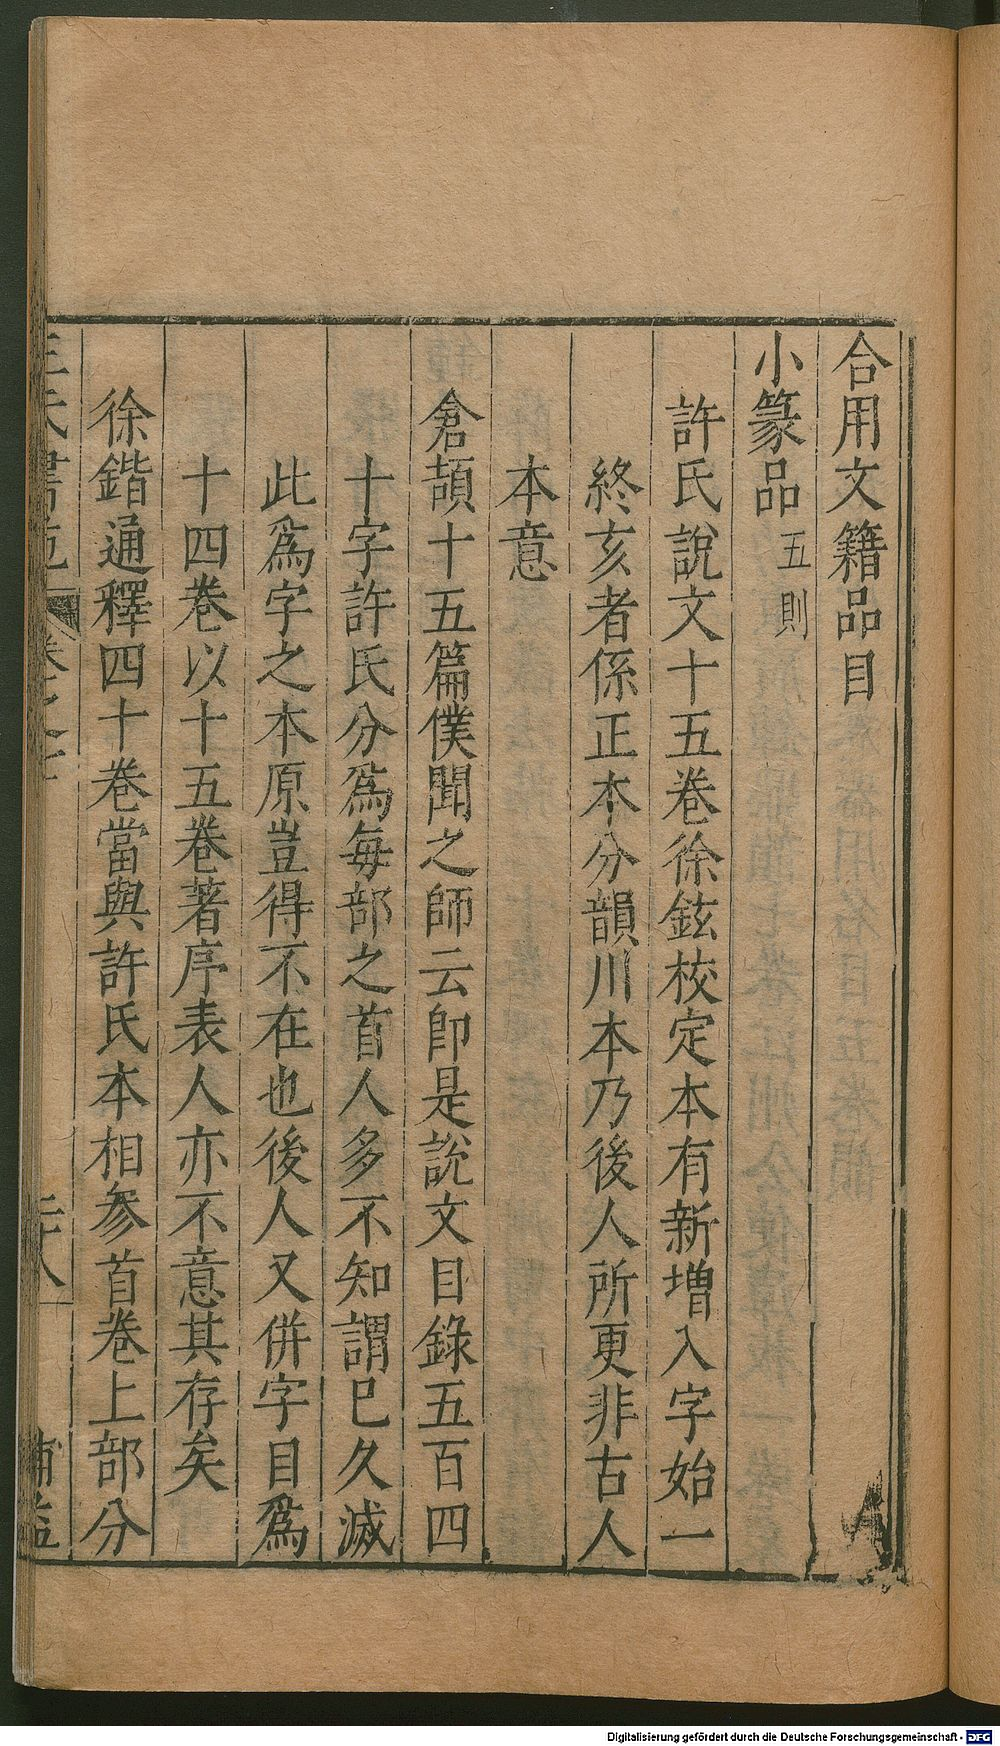 合用文籍品目
小篆品五則
許氏說文十五卷徐鉉校定本有新增入字始一
終亥者係正本分韻川本乃後人所更非古人
本意
倉頡十五篇僕聞之師云卽是說文目錄五百四
十字許氏分爲每部之首人多不知謂已久滅
此爲字之本原豈得不在也後人又併字目爲
十四卷以十五卷著序表人亦不意其存矣
徐鍇通釋四十卷當與許氏本相叅首卷上部分
Digitalisierung gefördert durch die Deutsche Forschungsgemeinschaft - DFG